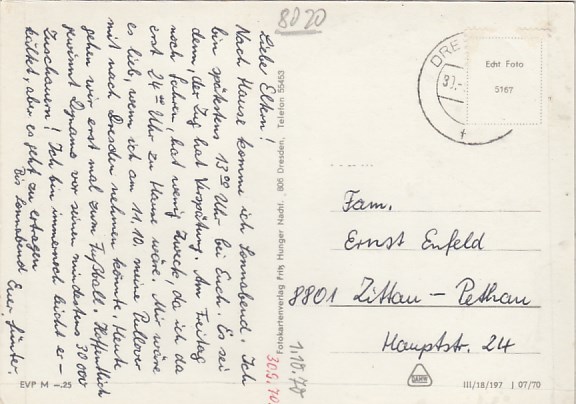 8020
Liebe Eltern!
Nach Hause komme ich Sonnabend. Ich
bin spätestens 13⁰⁰ Uhr bei Euch. Es sei
denn, der Zug hat Verspätung. Am Freitag
noch fahren, hat wenig Zweck, da ich da
erst 24⁰⁰ Uhr zu Hause wäre. Mir wäre
es lieb, wenn ich am 11.10. meine Pullover
mit nach Dresden nehmen könnte. Heute
gehen wir erst mal zum Fußball. Hoffentlich
gewinnt Dynamo vor seinen mindestens 30000
Zuschauern! Ich bin immernoch leicht er-
kältet, aber es geht zu ertragen
Bis Sonnabend Euer Günter.
Fotokartenverlag Fritz Hunger Nachf. 806 Dresden, Telefon 55463
30.9.70.
1.10.70
DRES
Echt Foto
5167
Fam.
Ernst Enfeld
8801 Zittau – Pethau
Hauptstr. 24
EVP M –.25
III/18/197 J 07/70